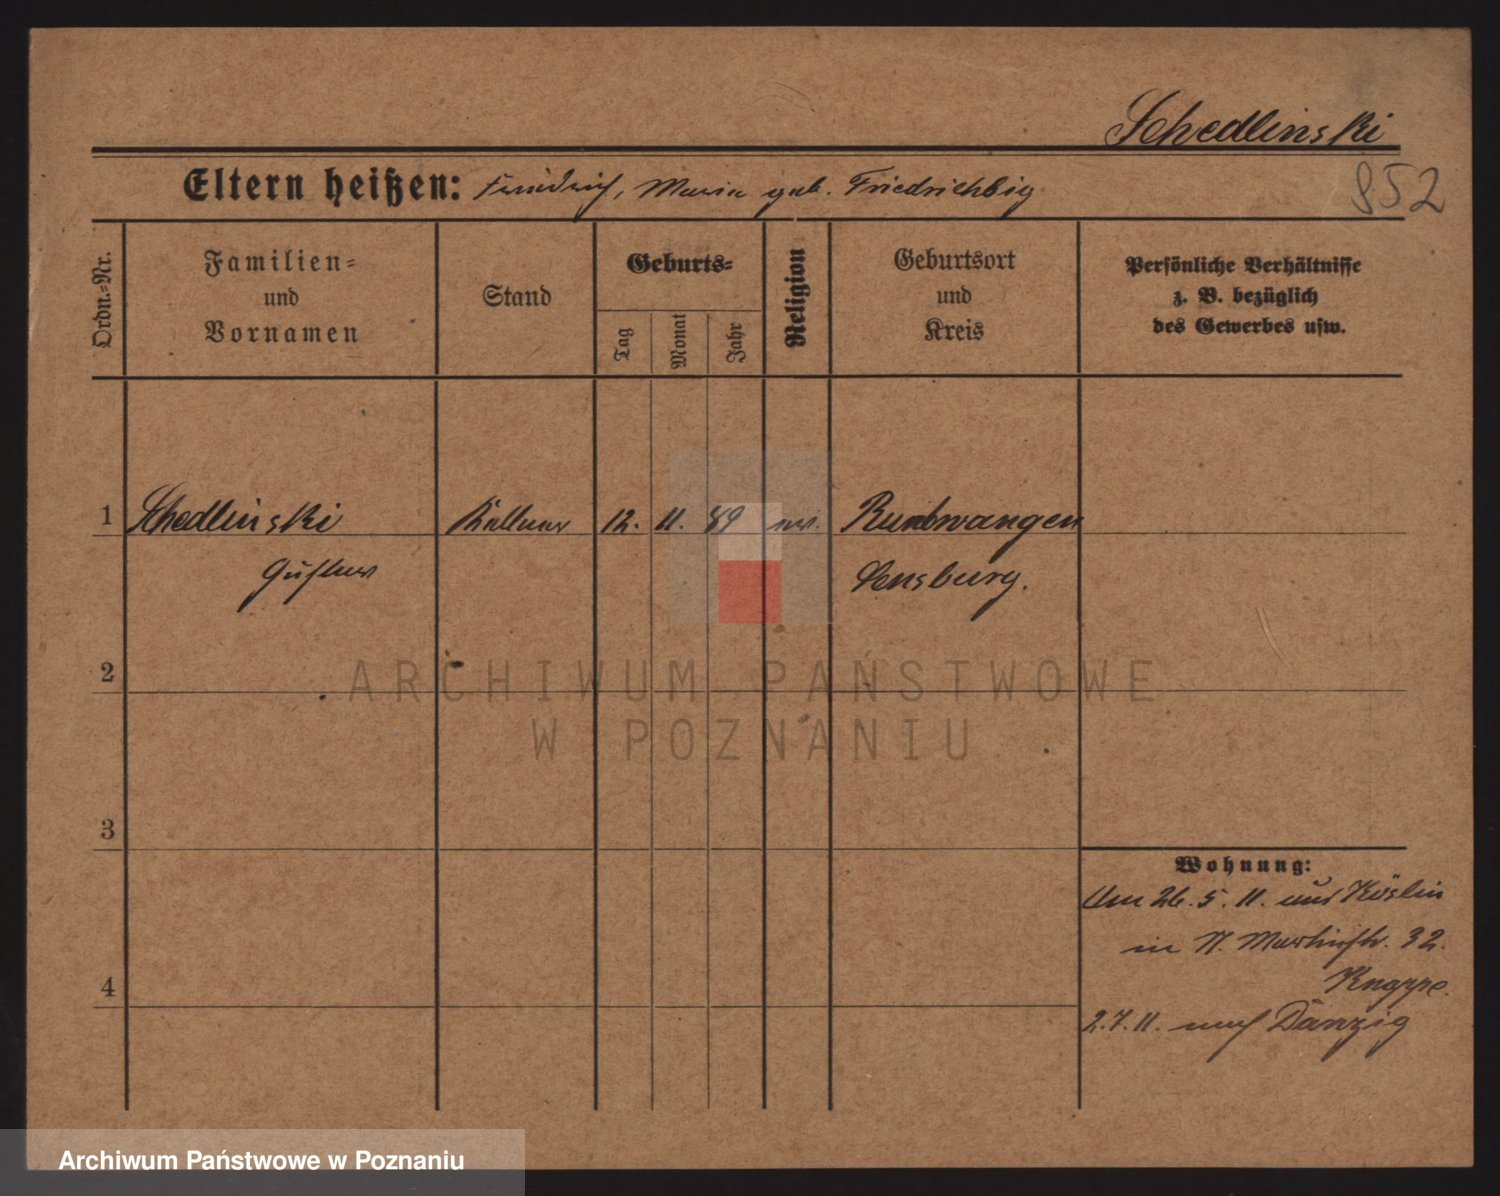 Schedlinski
Eltern heißen: Friedrich, Maria geb. Friedrichsig
852
Ordn.-Nr.
Familien-
und
Vornamen
Stand
Geburts-
Tag
Monat
Jahr
Religion
Geburtsort
und
Kreis
Persönliche Verhältnisse
z. B. bezüglich
des Gewerbes usw.
1 Schedlinski Kellner 12. 11. 89 ev.
Gustav Sensburg.
2
3
4
Wohnung:
Am 26. 5. 11. aus Köslin
in St. Martinstr. 32.
Knappe.
2.7.11. nach Danzig
ARCHIWUM PAŃSTWOWE
W POZNANIU
Archiwum Państwowe w Poznaniu